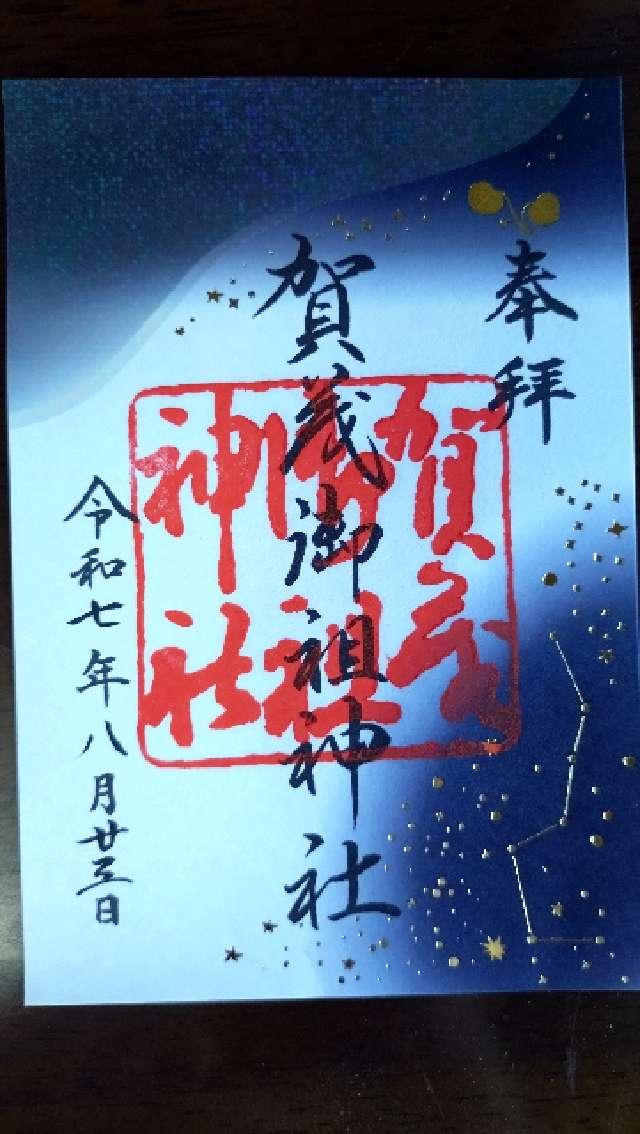 奉拝
賀茂御祖神社
賀茂
御祖
神社
令和七年八月廿三日